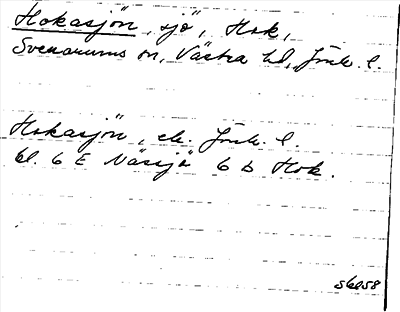 Hokasjön, sjö, Hok,
Svenarums sn, Västra hd, Jönk. l.
Hokasjön, ek. Jönk. l.
bl. 6 E Nässjö 6 b Hok.